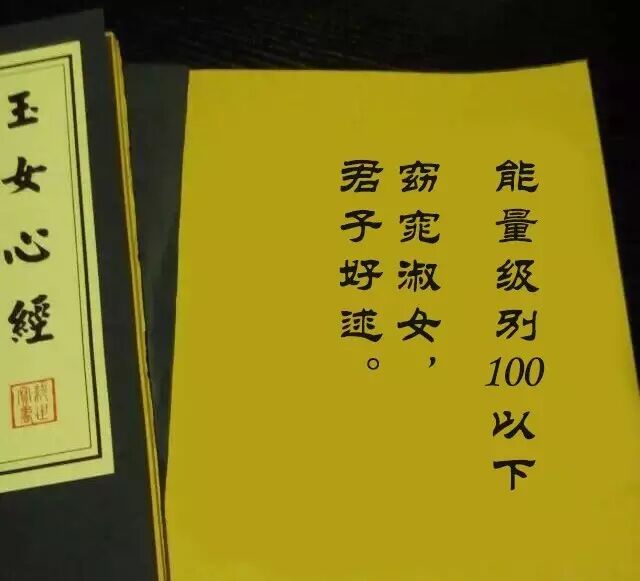 玉女心經
能量级别100以下
窈窕淑女，
君子好逑。